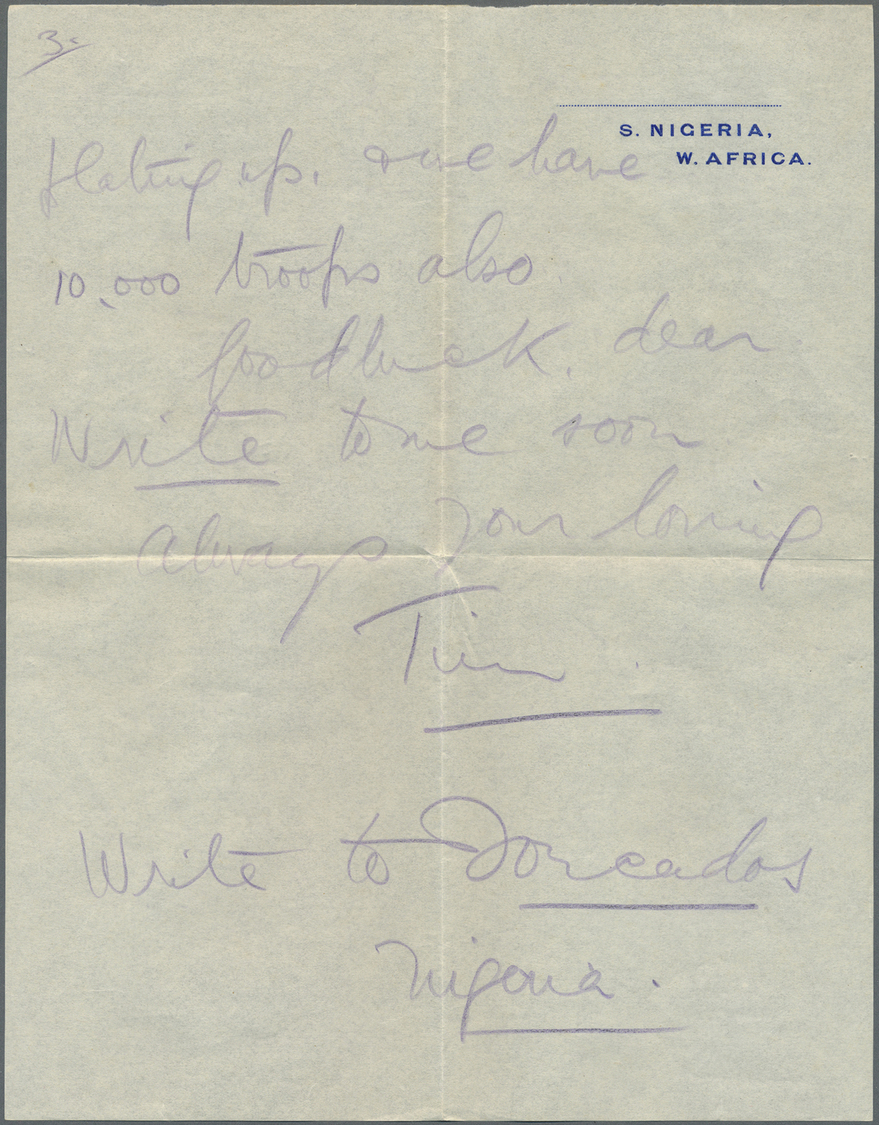 3.
S. NIGERIA,
W. AFRICA.
up. & we have
10,000 troops also
Goodluck. dear
Write to me soon
Always your loving
Tim
Write to Forcados
Nigeria.